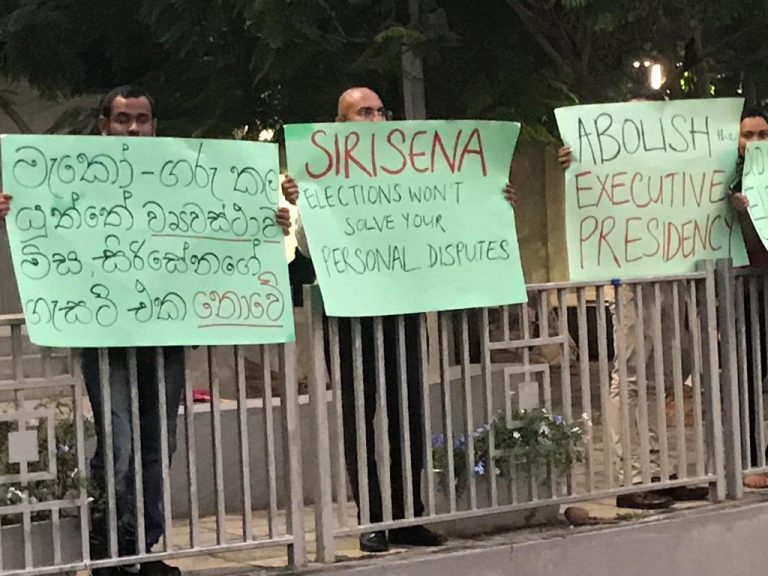 මැකෝ - ගරු කල
යුත්තේ ව්‍යවස්ථාව
මිස, සිරිසේනගේ
ගැසට් එක නොවේ
SIRISENA
ELECTIONS WON'T
SOLVE YOUR
PERSONAL DISPUTES
ABOLISH the
EXECUTIVE
PRESIDENCY